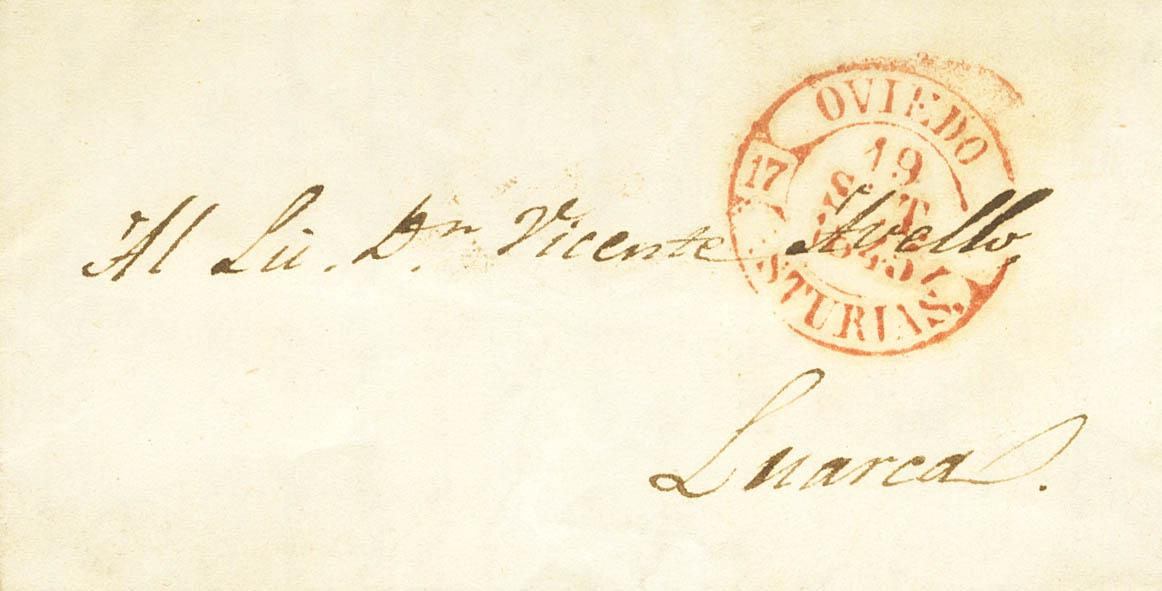 OVIEDO
17
19
SET
STURIAS.
Al Lic. Dn. Vicente Avello
Luarca.